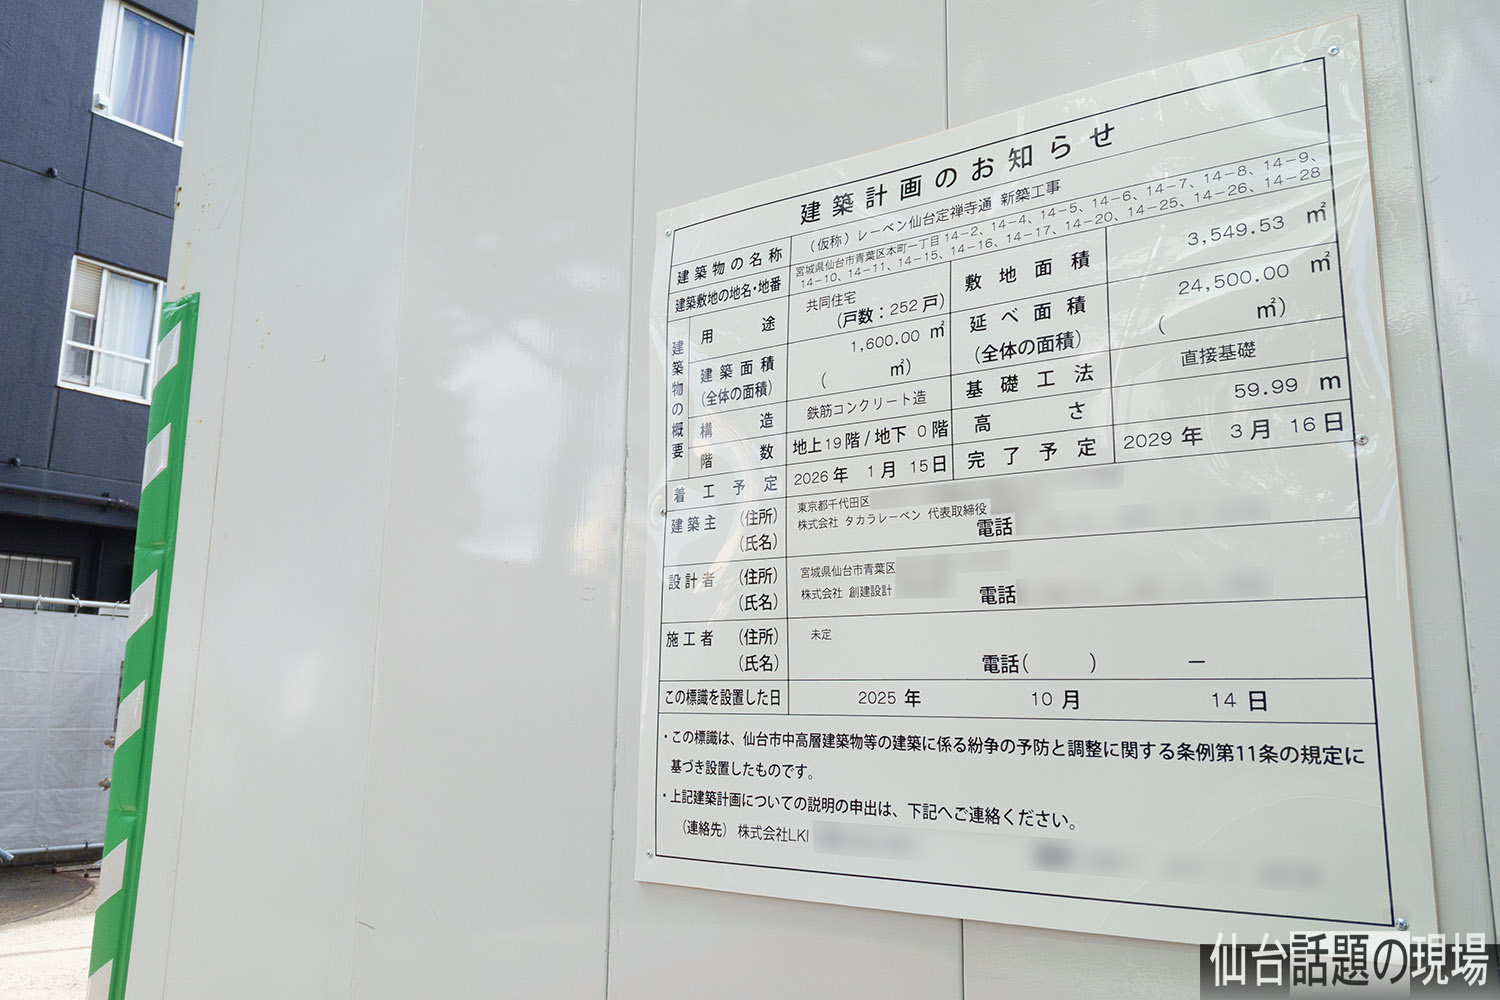 建築計画のお知らせ
建築物の名称 (仮称)レーベン仙台定禅寺通 新築工事
建築敷地の地名・地番 宮城県仙台市青葉区本町一丁目14-2、14-4、14-5、14-6、14-7、14-8、14-9、
14-10、14-11、14-15、14-16、14-17、14-20、14-25、14-26、14-28
建築物の概要
用途 共同住宅
(戸数：252戸)
敷地面積 3,549.53 ㎡
建築面積 1,600.00 ㎡
(全体の面積) ( ㎡)
延べ面積 24,500.00 ㎡
(全体の面積) ( ㎡)
構造 鉄筋コンクリート造
基礎工法 直接基礎
階数 地上19階/地下 0階
高さ 59.99 m
着工予定 2026年 1月 15日
完了予定 2029年 3月 16日
建築主 (住所) 東京都千代田区
(氏名) 株式会社 タカラレーベン 代表取締役
電話
設計者 (住所) 宮城県仙台市青葉区
(氏名) 株式会社 創建設計
電話
施工者 (住所) 未定
(氏名) 電話( ) －
この標識を設置した日 2025年 10月 14日
・この標識は、仙台市中高層建築物等の建築に係る紛争の予防と調整に関する条例第11条の規定に
基づき設置したものです。
・上記建築計画についての説明の申出は、下記へご連絡ください。
(連絡先) 株式会社LKI
仙台話題の現場